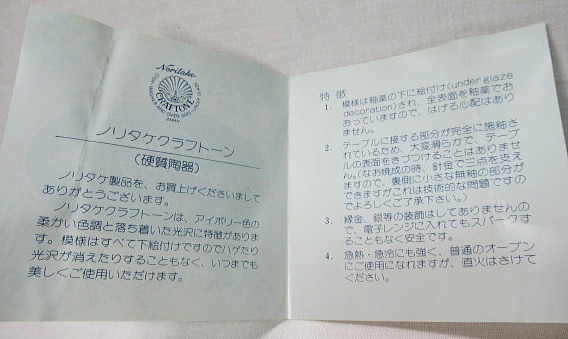 Noritake
CRAFTONE
ノリタケクラフトーン
(硬質陶器)
ノリタケ製品を、お買上げくださいまして
ありがとうございます。
ノリタケクラフトーンは、アイボリー色の
柔かい色調と落ち着いた光沢に特徴がありま
す。模様はすべて下絵付けですのでハゲたり
光沢が消えたりすることもなく、いつまでも
美しくご使用いただけます。
特徴
1. 模様は釉薬の下に絵付け(under glaze
decoration)され、全表面を釉薬でお
おっていますので、はげる心配はあり
ません。
2. テーブルに接する部分が完全に施釉さ
れているため、大変滑らかで、テーブ
ルの表面をきづつけることはありませ
ん。(なお焼成の時、計金で三点を支え
ますので、裏側に小さな無釉の部分が
できますがこれは技術的な問題ですの
でよろしくご了承下さい。)
3. 縁金、銀等の装飾はしてありませんの
で、電子レンジに入れてもスパークす
ることもなく安全です。
4. 急熱・急冷にも強く、普通のオーブン
にご使用になれますが、直火はさけて
ください。